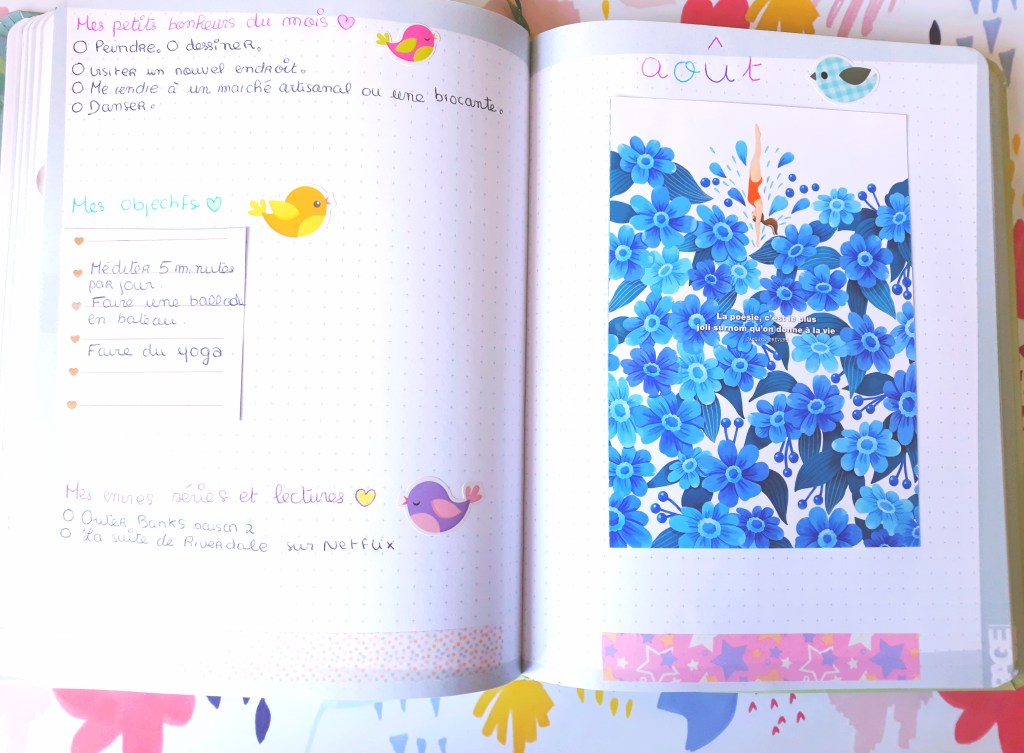 Mes petits bonheurs du mois
Peindre. O dessiner.
Visiter un nouvel endroit.
Me rendre à un marché artisanal ou une brocante.
Danser.
Mes objectifs
Méditer 5 minutes
par jour
Faire une ballade
en bateau.
Faire du yoga.
Mes envies séries et lectures
Outer Banks saison 2
La suite de Riverdale sur Netflix
août
La poésie, c'est le plus
joli surnom qu'on donne à la vie